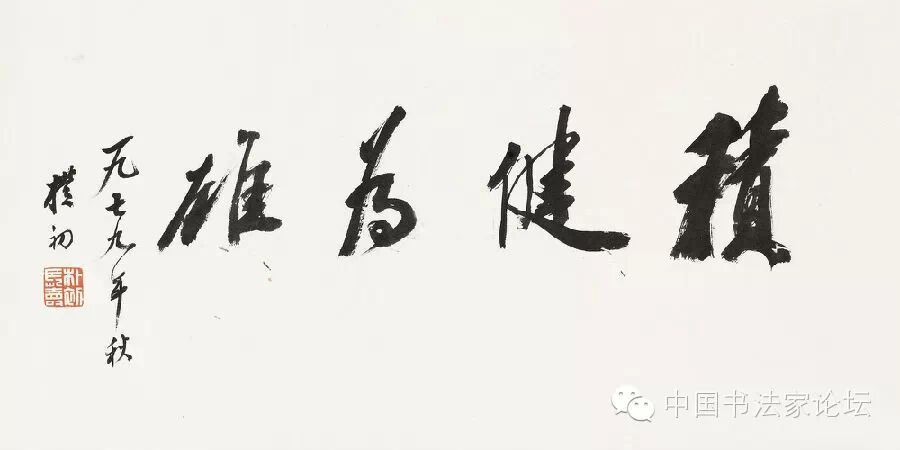 積健為雄
一九七九年秋
樸初
朴初長壽
中国书法家论坛